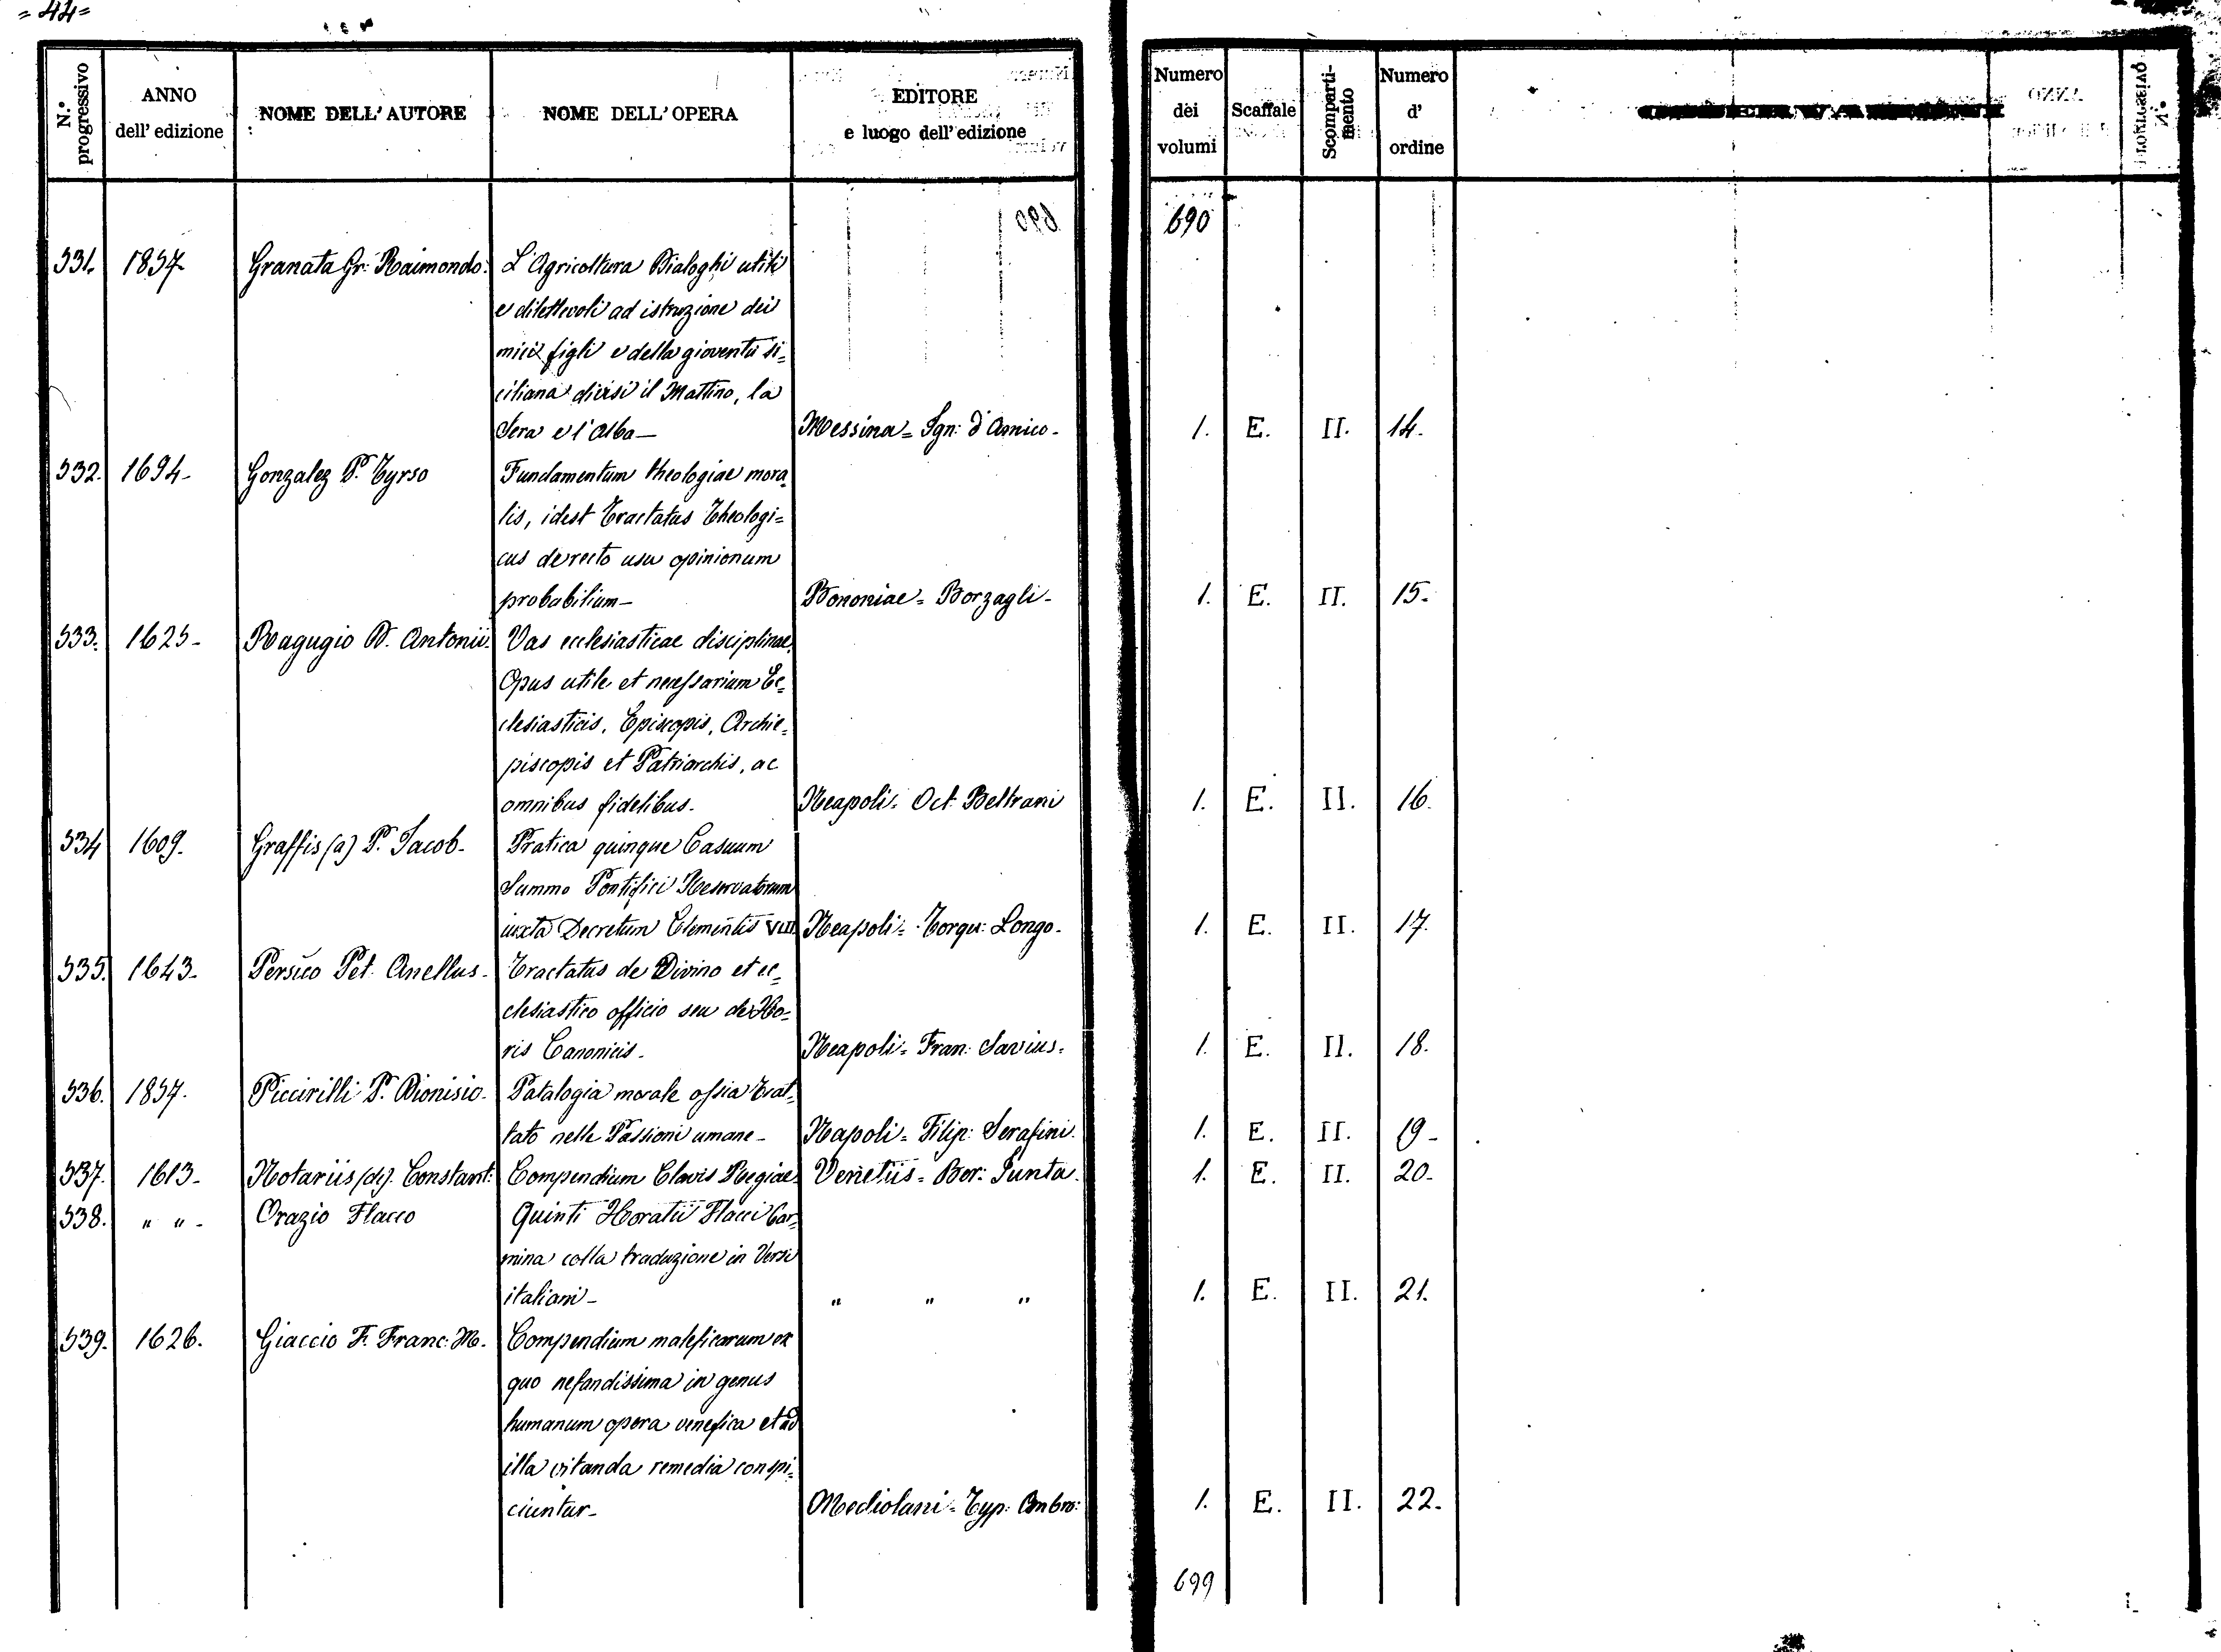 = 44 =
N.° progressivo
ANNO dell' edizione
NOME DELL' AUTORE
NOME DELL' OPERA
EDITORE e luogo dell' edizione
Numero dei volumi
Scaffale
Scompartimento
Numero d' ordine
690
531. 1857 Granata Gr: Raimondo. L'Agricoltura Dialoghi utili
e dilettevoli ad istruzione dei
miei figli e della gioventù si=
ciliana divisi il Mattino, la
Sera e l'Alba — Messina = Ign: d'Amico - 1. E. II. 14.
532. 1694 - Gonzalez P. Tyrso Fundamentum theologiae mora=
lis, idest Tractatus Theologi=
cus de recto usu opinionum
probabilium - Bononiae = Borzagli - 1. E. II. 15.
533. 1625 - Ragugio D. Antonii. Vas ecclesiasticae disciplinae.
Opus utile et necessarium Ec=
clesiasticis, Episcopis, Archie=
piscopis et Patriarchis, ac
omnibus fidelibus. Neapoli = Oct. Beltrani 1. E. II. 16.
534 1609. Graffis (a) P. Jacob. Pratica quinque Casuum
Summo Pontifici Reservatorum
iuxta Decretum Clementis VIII Neapoli = Torqu: Longo. 1. E. II. 17.
535. 1643. Persico Pet. Anellus. Tractatus de Divino et ec=
clesiastico officio seu de Ho=
ris Canonicis. Neapoli = Fran: Savius. 1. E. II. 18.
536. 1857. Piccirilli P. Dionisio. Patalogia morale ossia Trat=
tato nelle Passioni umane - Napoli = Filip: Serafini. 1. E. II. 19 -
537. 1613 - Notariis (de). Constant: Compendium Clavis Regiae. Venetiis = Ber: Junta. 1. E. II. 20.
538. " " - Orazio Flacco Quinti Horatii Flacci Car=
mina colla traduzione in Versi
italiani - " " " 1. E. II. 21.
539. 1626. Giaccio F. Franc: M. Compendium maleficarum ex
quo nefandissima in genus
humanum opera venefica et ad
illa vitanda remedia conspi=
ciuntur - Mediolani = Typ: Ambro: 1. E. II. 22.
699